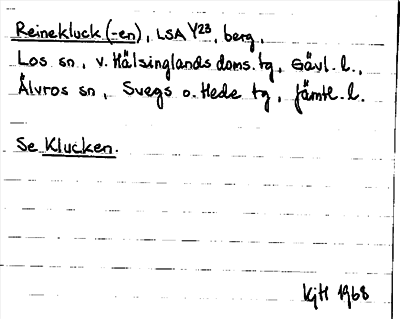 Reinekluck (-en), LSA Y23, berg,
Los sn, v. Hälsinglands doms. tg, Gävl. l.,
Älvros sn, Svegs o. Hede tg, Jämtl. l.
Se Klucken.
KjH 1968